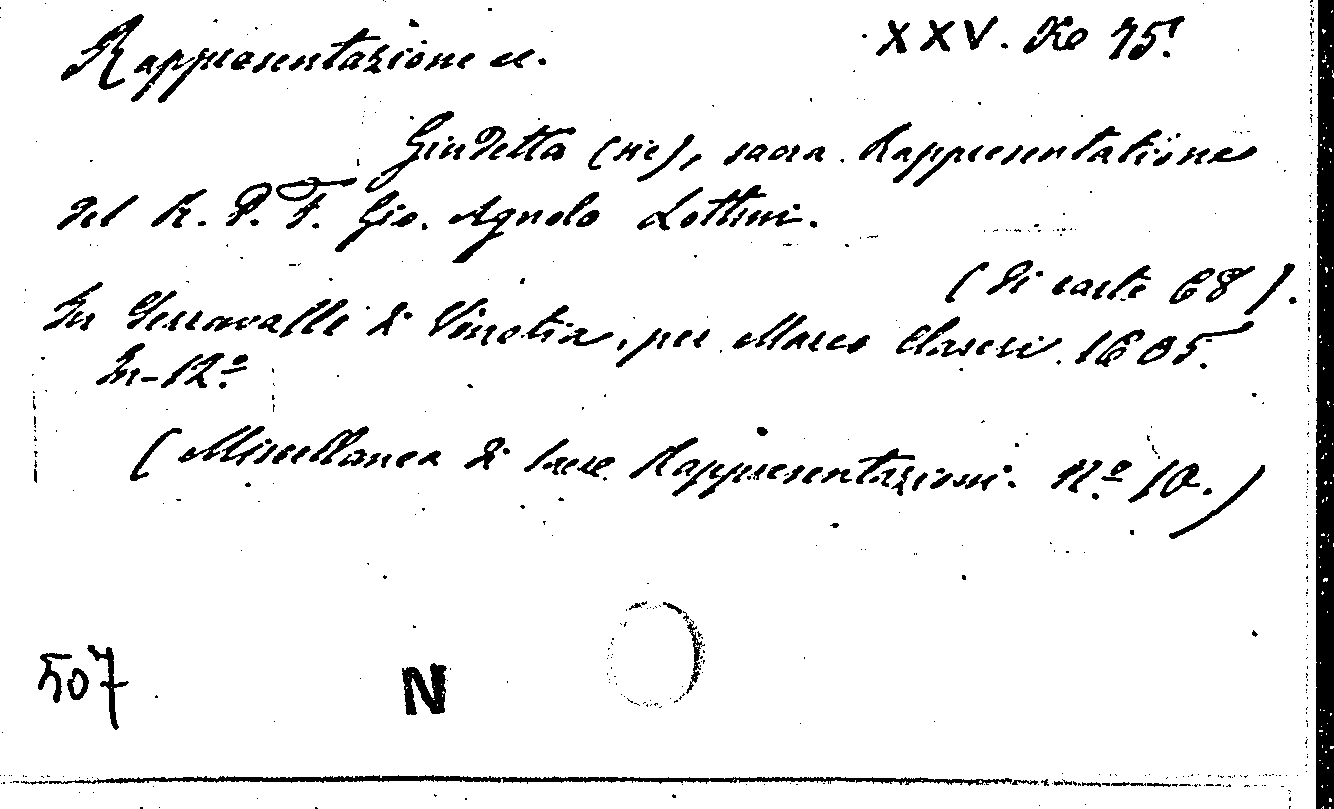 Rappresentazione ec. XXV. Ke 75!
Giudetta (sic), sacra Rappresentatione
del R. P. F. Gio. Agnolo Lottini.
(di carte 68).
In Serravalle di Vinetia, per Marco Claseri. 1605.
In-12º
(Miscellanea di Sacre Rappresentazioni. Nº 10.)
507
N